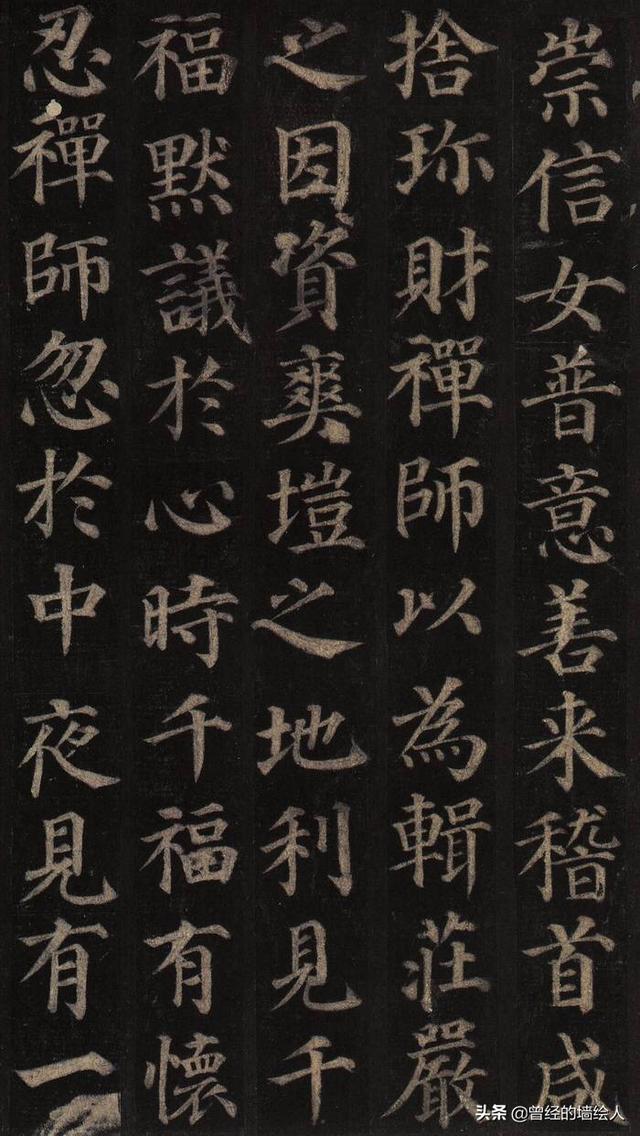 崇信女普意善来稽首咸
捨珎財禪師以為輯莊嚴
之因資爽塏之地利見千
福默議於心時千福有懷
忍禪師忽於中夜見有一
头条 @曾经的墙绘人